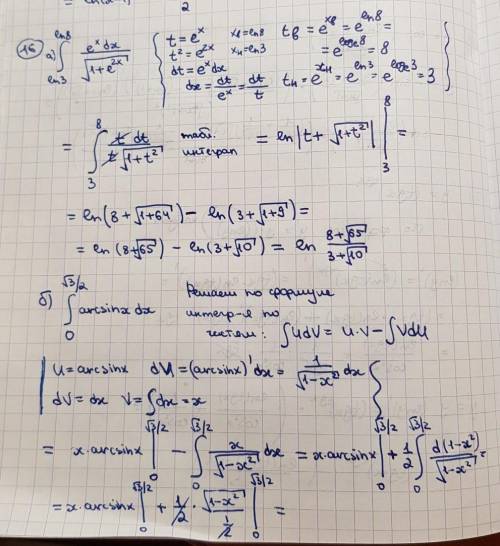 16 а) ∫_{ln3}^{ln8} e^x dx / √(1+e^{2x}) { t = e^x x_в = ln8 t_в = e^{x_в} = e^{ln8} =
t² = e^{2x} x_н = ln3 = e^{log_e 8} = 8
dt = e^x dx
dx = dt/e^x = dt/t t_н = e^{x_н} = e^{ln3} = e^{log_e 3} = 3 }
= ∫_3^8 t dt / (t√(1+t²)) табл. интеграл = ln|t + √(1+t²)| |_3^8 =
= ln(8+√(1+64)) − ln(3+√(1+9)) =
= ln(8+√65) − ln(3+√10) = ln (8+√65)/(3+√10)
б) ∫_0^{√3/2} arcsinx dx Решаем по формуле
интегр-я по
частям: ∫udV = u·V − ∫Vdu
| u = arcsinx du = (arcsinx)' dx = 1/√(1−x²) dx }
| dV = dx V = ∫dx = x
= x·arcsinx |_0^{√3/2} − ∫_0^{√3/2} x/√(1−x²) dx = x·arcsinx |_0^{√3/2} + 1/2 ∫_0^{√3/2} d(1−x²)/√(1−x²) =
= x·arcsinx |_0^{√3/2} + 1/2 · √(1−x²)/(1/2) |_0^{√3/2} =